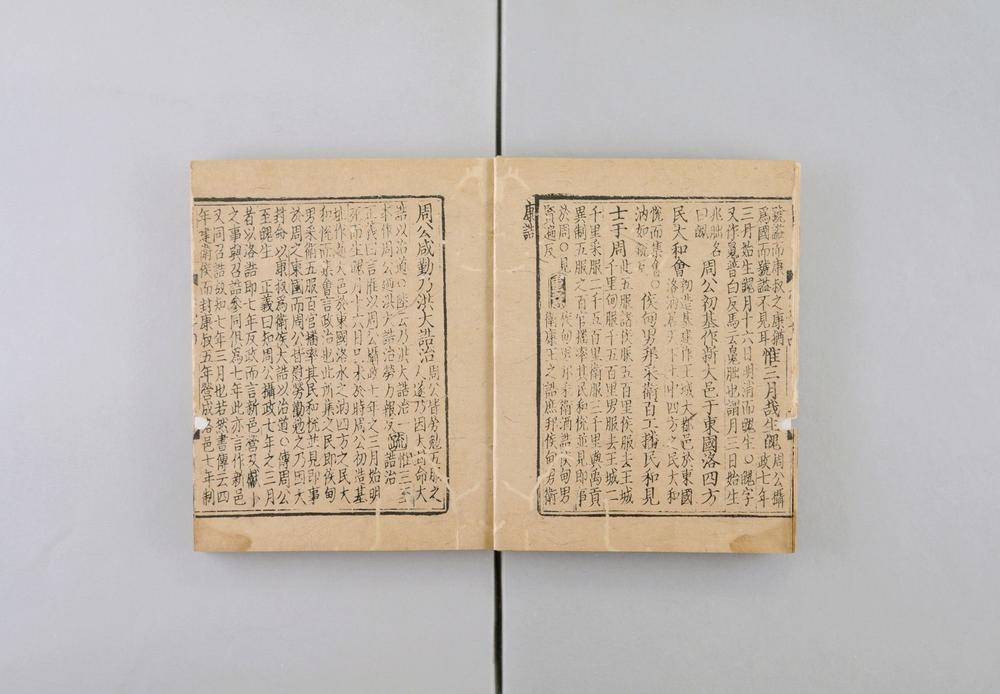 康誥
號謚而康叔之康猶
爲國而號謚不見耳
惟三月哉生魄
周公攝
政七年
三月始生魄月十六日明消而魄生○魄字
又作 普白反馬云 朏也謂月三日始生
兆朏名
曰魄
周公初基作新大邑于東國洛四方
民大和會
初造基建作王城大都邑於東國
洛汭居天下土中四方之民大和
悅而集會○
汭如銳反
侯甸男邦采衛百工播民和見
士于周
此五服諸侯服五百里侯服去王城
千里甸服千五百里男服去王城二
千里采服二千五百里衛服三千里與禹貢
異制五服之百官播率其民和悅並見即事
於周○見
賢遍反
侯甸男邦采衛酒誥侯甸男
衛康王之誥庶邦侯甸男衛
周公咸勤乃洪大誥治
周公皆勞勉五服之
人遂乃因大封命大
誥以治道○ 云乃洪大誥治一
本作周公迺洪大誥治勞力報反
疏
惟三至
誥治
正義曰言惟以周公攝政七年之三月始明
死而生魄月十六日己未於時周公初造基
址作新大邑於東國洛水之汭四方之民大
和悅而集會言政治也此所集之民即侯甸
男采衛五服百官播率其民和悅並見即事
於周之東國而周公皆慰勞勸勉之乃因大
封命以康叔爲衛侯大誥以治道○傳周公
至魄生 正義曰知周公攝政七年之三月
者以洛誥即七年反政而言新邑營及獻卜
之事與召誥參同俱爲七年此亦言作新邑
又同召誥故知七年三月也若然書傳云四
年建衛侯而封康叔五年營成洛邑七年制